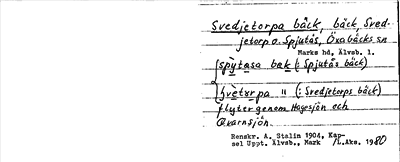 Svedjetorpa bäck, bäck, Sved-
jetorp o. Spjutås, Öxabäcks sn
Marks hd, Älvsb. l.
spy̱tasa bæk (: Spjutås bäck)
"  (: Svedjetorps bäck)
flyter genom Hagesjön och
Qvarnsjön.
Renskr. A. Stalin 1904, Kap-
sel Uppt. Älvsb., Mark /L.Aks. 1980